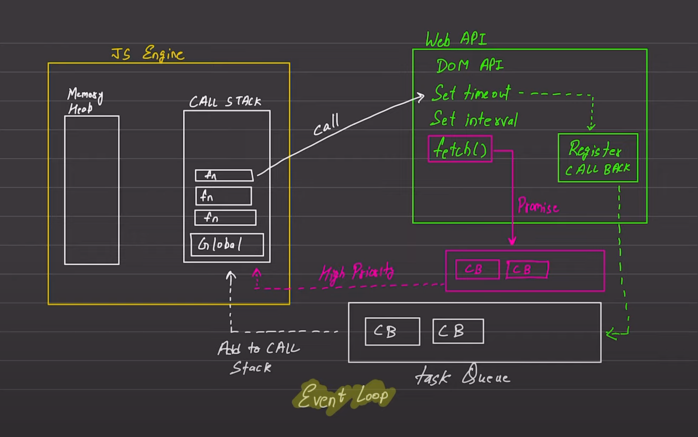 JS Engine
Memory
Heap
CALL STACK
fn
fn
fn
Global
call
Web API
DOM API
Set timeout
Set interval
fetch()
Register
CALL BACK
Promise
High Priority
CB
CB
Add to CALL
Stack
CB
CB
task Queue
Event Loop